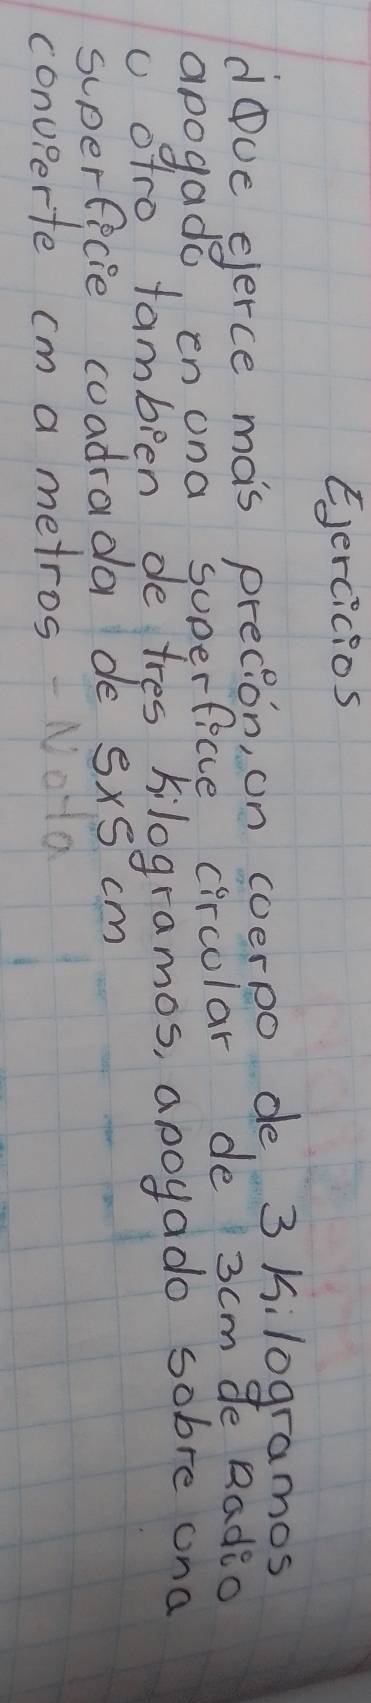 Ejercicios
¿Que ejerce más preción, un cuerpo de 3 kilogramos
apoyado en una superficue circular de 3cm de Radio
u otro tambien de tres kilogramos, apoyado sobre una
superficie cuadrada de 5x5 cm
convierte cm a metros - Nota